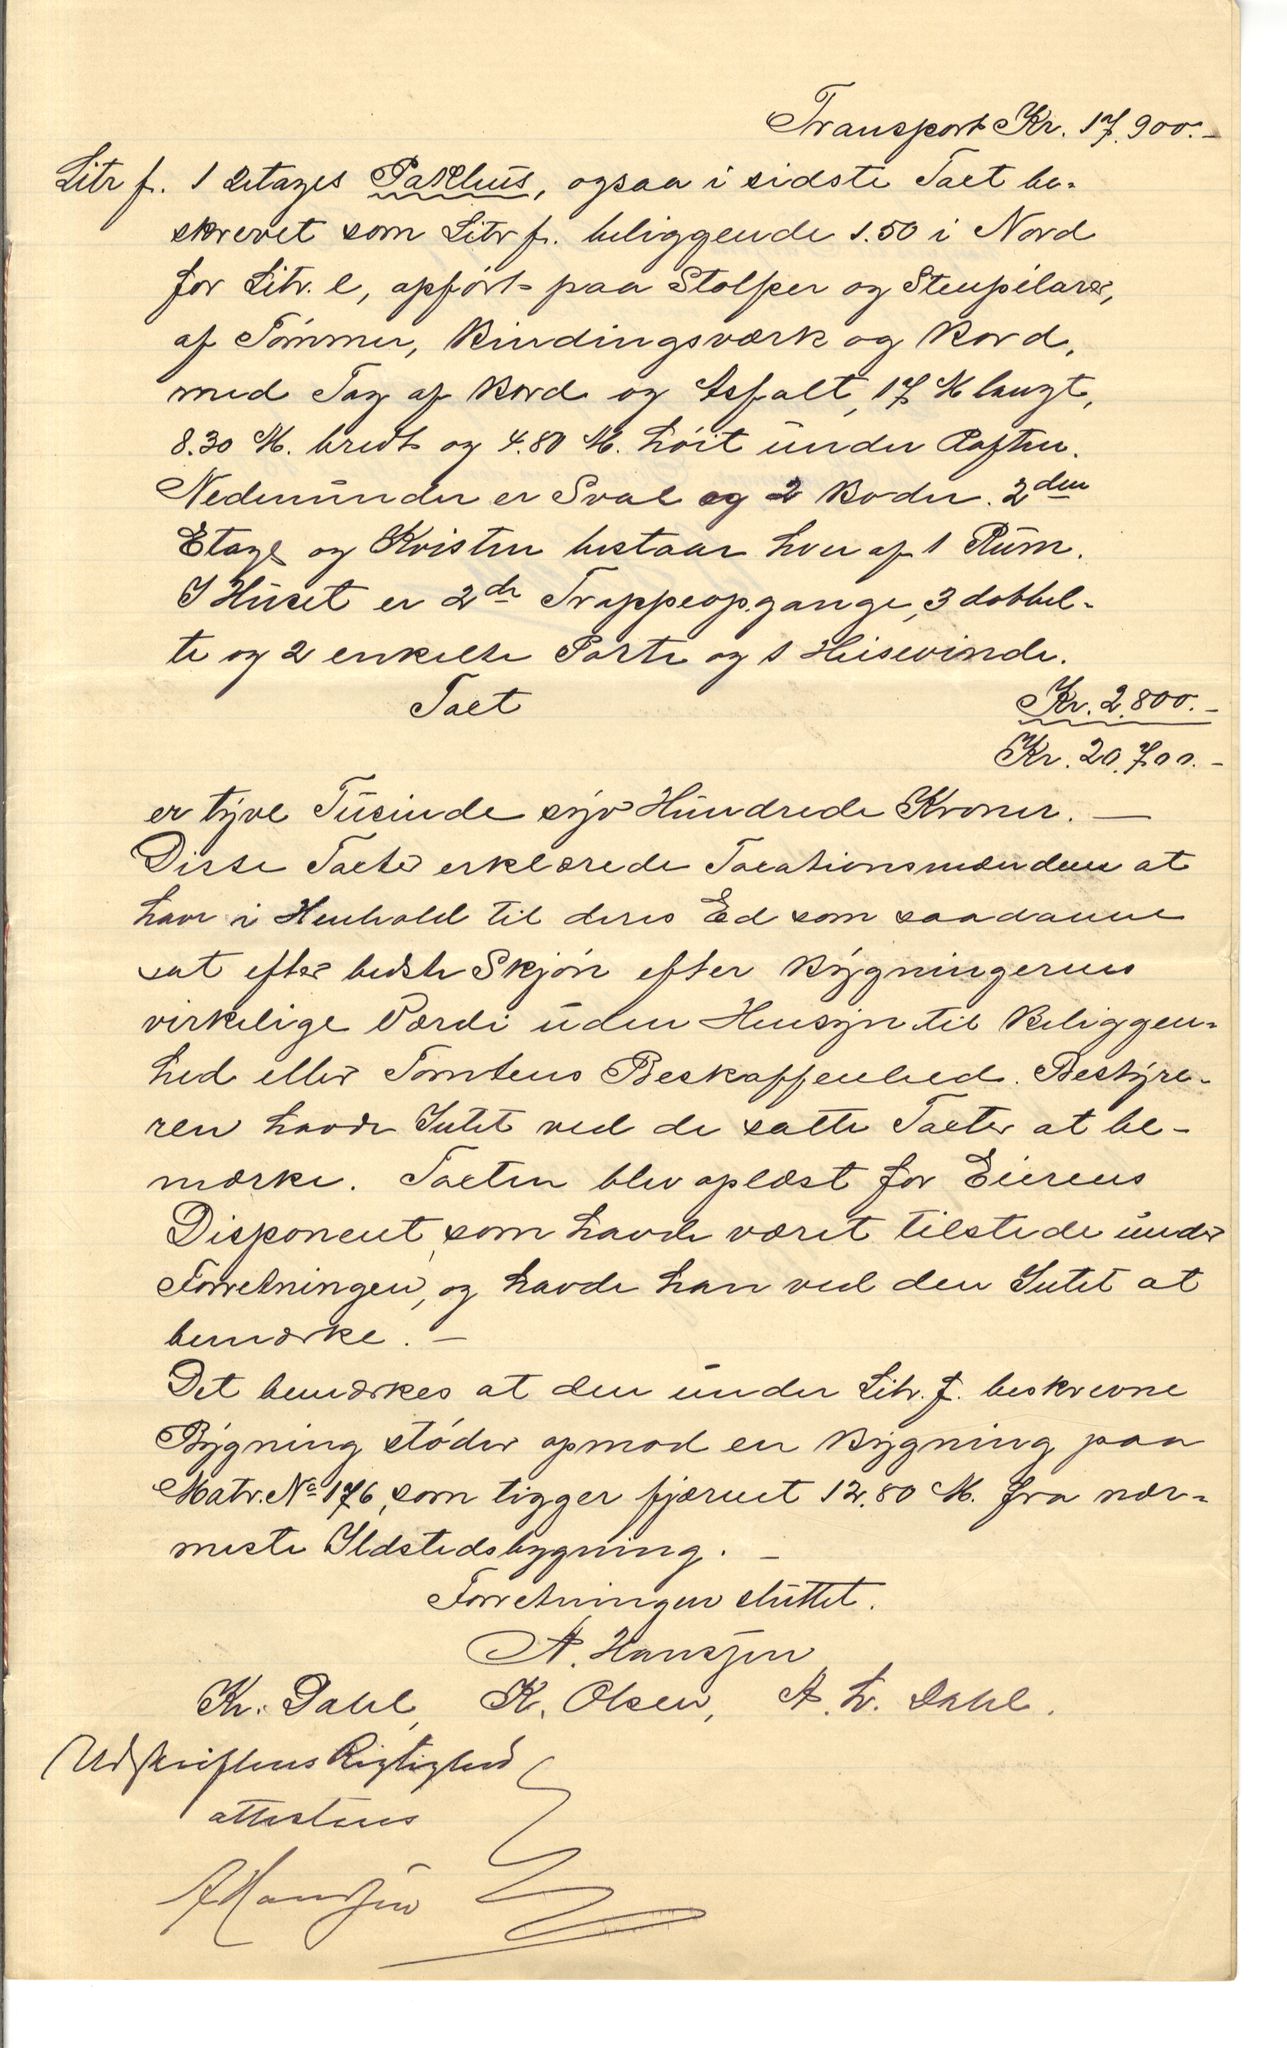 Transport Kr. 17.900.-
Litr f. 1 2etages Pakhus, ogsaa i sidste Taxt be-
skrevet som Litr f. beliggende 1.50 i Nord
for Litr. e, opført paa Stolper og Stenpilarer,
af Tømmer, Bindingsværk og Bord,
med Tag af Bord og Asfalt, 17 M langt,
8.30 M. bredt og 4.80 M. høit under Raften.
Nedenunder er Sval og 2 Boder. 2den
Etage og Kvisten bestaar hver af 1 Rum.
I Huset er 2de Trappeopgange, 3 dobbel-
te og 2 enkelte Porte og 1 Heisevinde.
Taxt Kr. 2.800.-
Kr. 20.700.-
er tyve Tusinde syv Hundrede Kroner. —
Disse Taxter erklærede Taxationsmændene at
have i Henhold til deres Ed som saadanne
sat efter bedste Skjøn efter Bygningernes
virkelige Værdi uden Hensyn til Beliggen-
hed eller Tomtens Beskaffenhed. Bestyre-
ren havde Intet ved de satte Taxter at be-
mærke. Taxten blev oplæst for Eierens
Disponent, som havde været tilstede under
Forretningen, og havde han ved den Intet at
bemærke. —
Det bemærkes at den under Litr. f. beskrevne
Bygning støder opmod en Bygning paa
Matr. No 176, som ligger fjærnet 12.80 M. fra nær-
meste Ildstedsbygning. —
Forretningen sluttet.
A. Hanssen
Kr. Dahl, K. Olsen, A. L. Dahl.
Udskriftens Rigtighed
attesteres
A Hanssen